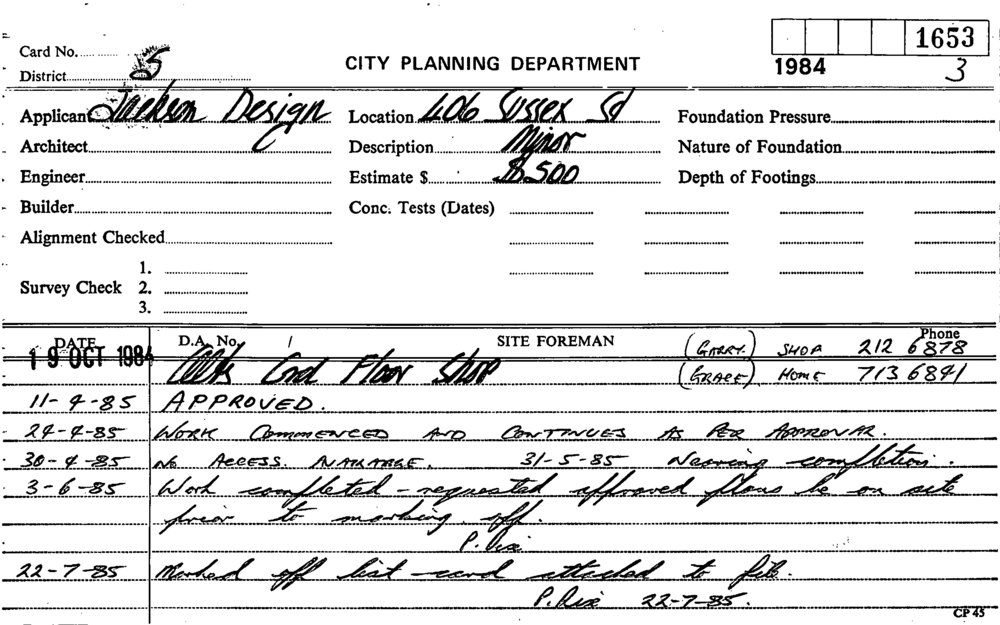 1653
Card No. CITY PLANNING DEPARTMENT 1984 3
District S
Applicant Jackson Design Location 406 Sussex St Foundation Pressure
Architect Description Minor Nature of Foundation
Engineer Estimate $ $500 Depth of Footings
Builder Conc. Tests (Dates)
Alignment Checked
1.
Survey Check 2.
3.
DATE D.A. No. / SITE FOREMAN (GARRY) SHOP Phone 212 6878
19 OCT 1984 Alts Gnd Floor Shop (GRACE) HOME 713 6841
11-4-85 APPROVED.
24-4-85 WORK COMMENCED AND CONTINUES AS PER APPROVAL.
30-4-85 NO ACCESS. AVAILABLE. 31-5-85 Nearing completion.
3-6-85 Work completed - requested approved plans be on site
prior to marking off.
P. Rix
22-7-85 Marked off list - card attached to file.
P. Rix 22-7-85.
CP 45